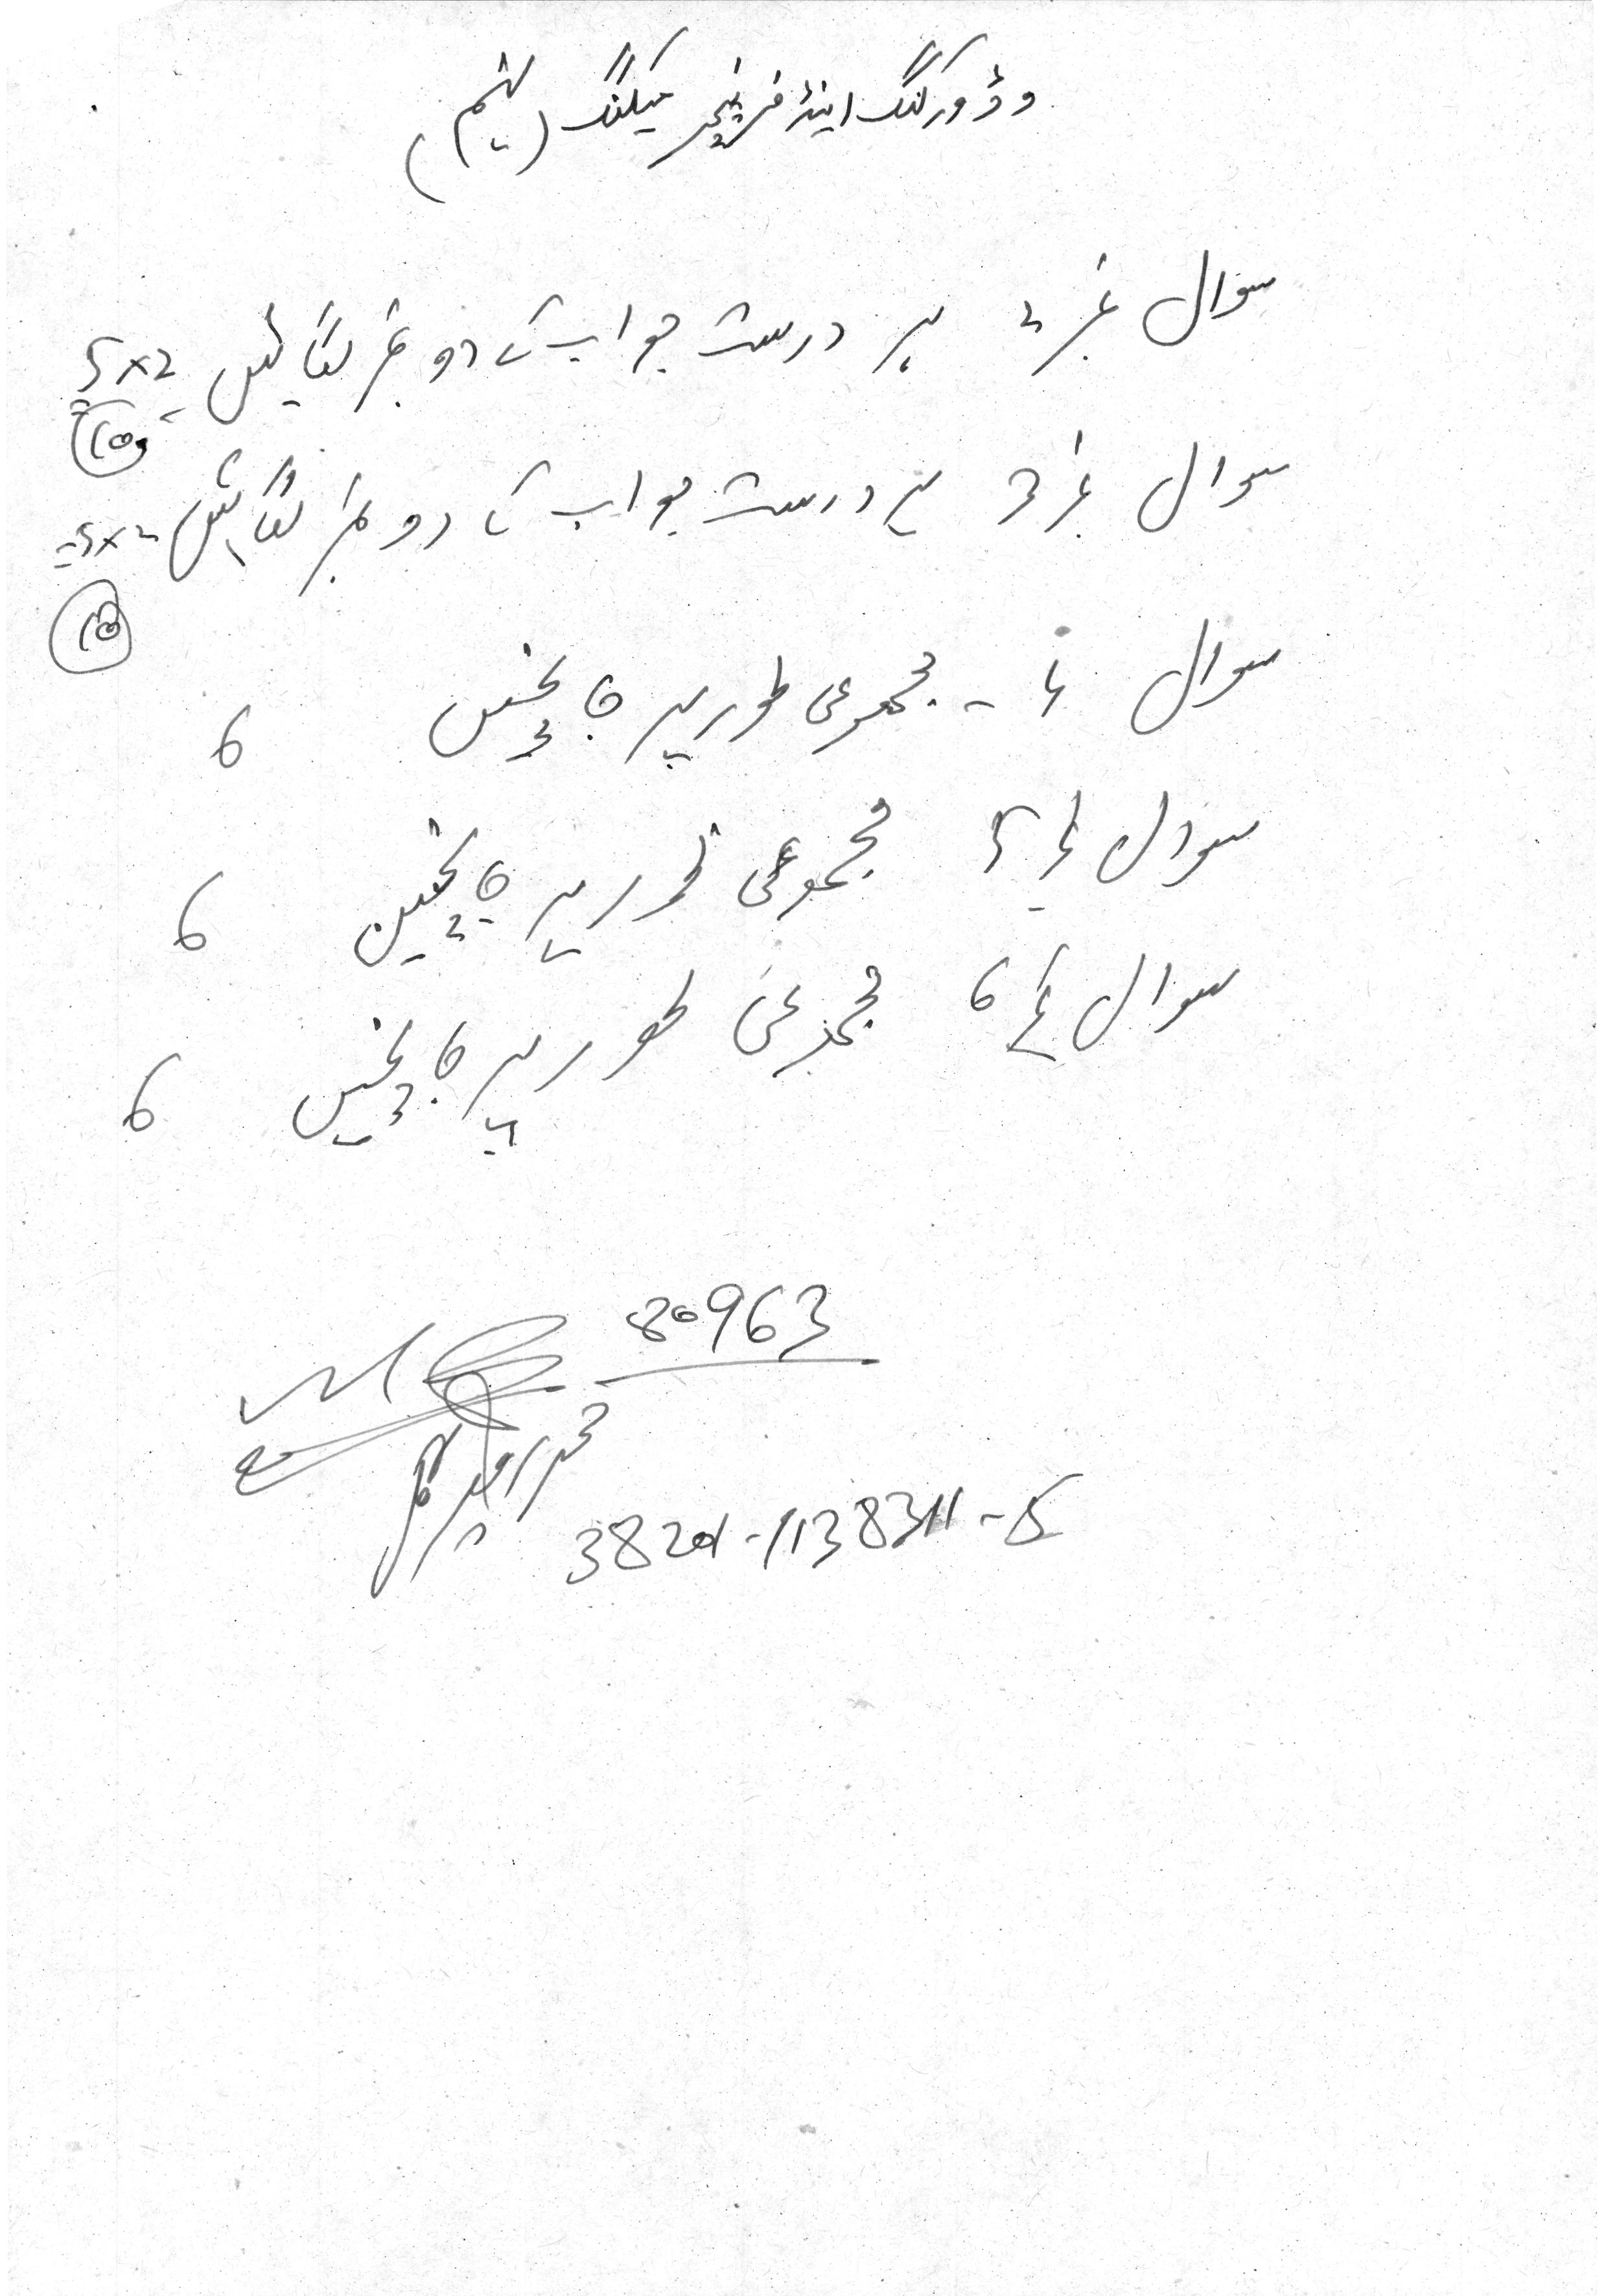 ووڈ ورکنگ اینڈ فرنیچر میکنگ (نہم)
سوال نمبر 2 ہر درست جواب کا دو نمبر لگائیں 5x2=
10
سوال نمبر 3 ہر درست جواب کے دو نمبر لگائیں 5x2=
10
سوال 4 - مجموعی طور پر جانچیں 6
سوال نمبر 5 مجموعی طور پر جانچیں 6
سوال نمبر 6 مجموعی طور پر جانچیں 6
80963
محمد امیر
38201-1138311-5